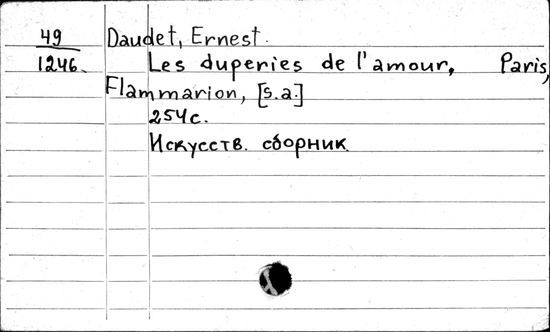 49 Daudet, Ernest.
1246. Les duperies de l'amour, Paris,
Flammarion, [s.a.]
254 с.
Искусств. сборник